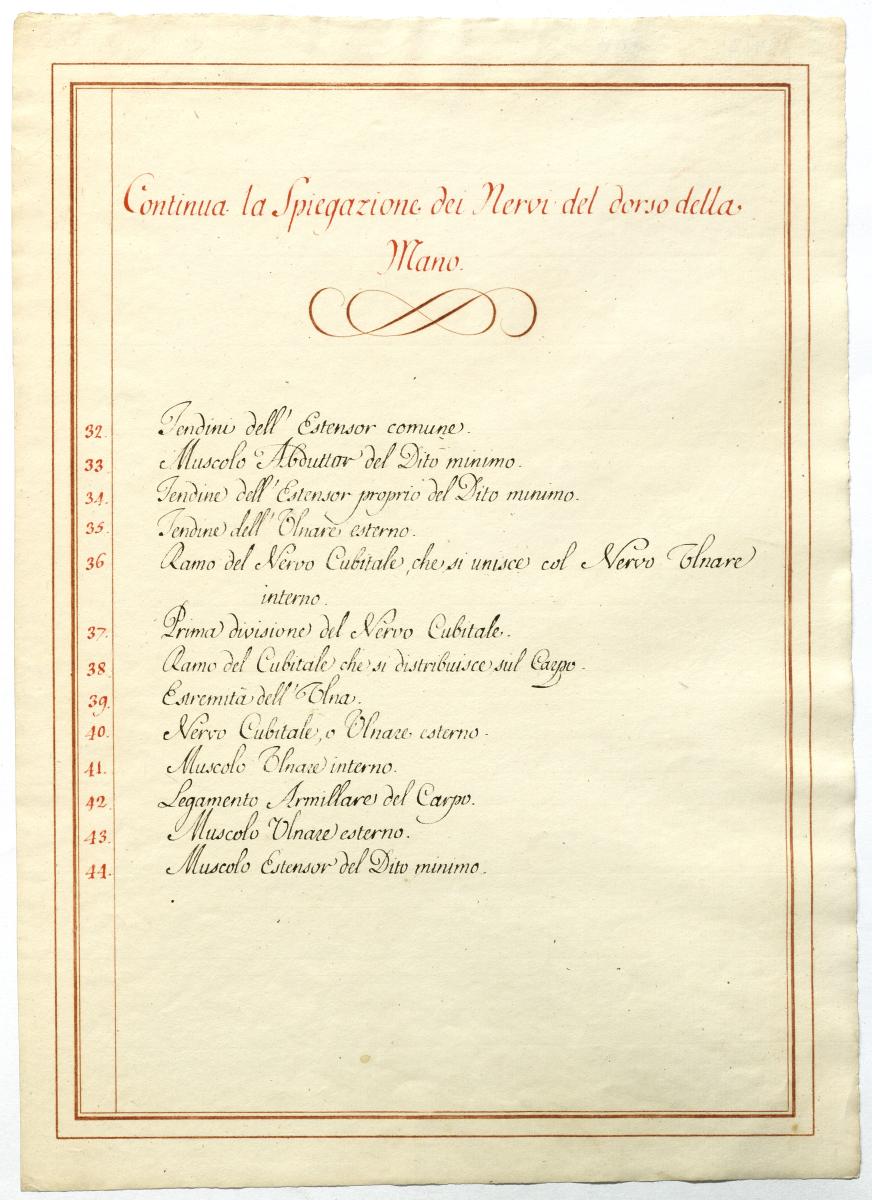 Continua la Spiegazione dei Nervi del dorso della
Mano.
32. Tendini dell' Estensor comune.
33. Muscolo Abduttor del Dito minimo.
34. Tendine dell' Estensor proprio del Dito minimo.
35. Tendine dell' Ulnare esterno.
36 Ramo del Nervo Cubitale, che si unisce col Nervo Ulnare
interno.
37. Prima divisione del Nervo Cubitale.
38. Ramo del Cubitale che si distribuisce sul Carpo.
39. Estremità dell' Ulna.
40. Nervo Cubitale, o Ulnare esterno.
41. Muscolo Ulnare interno.
42. Legamento Armillare del Carpo.
43. Muscolo Ulnare esterno.
44. Muscolo Estensor del Dito minimo.